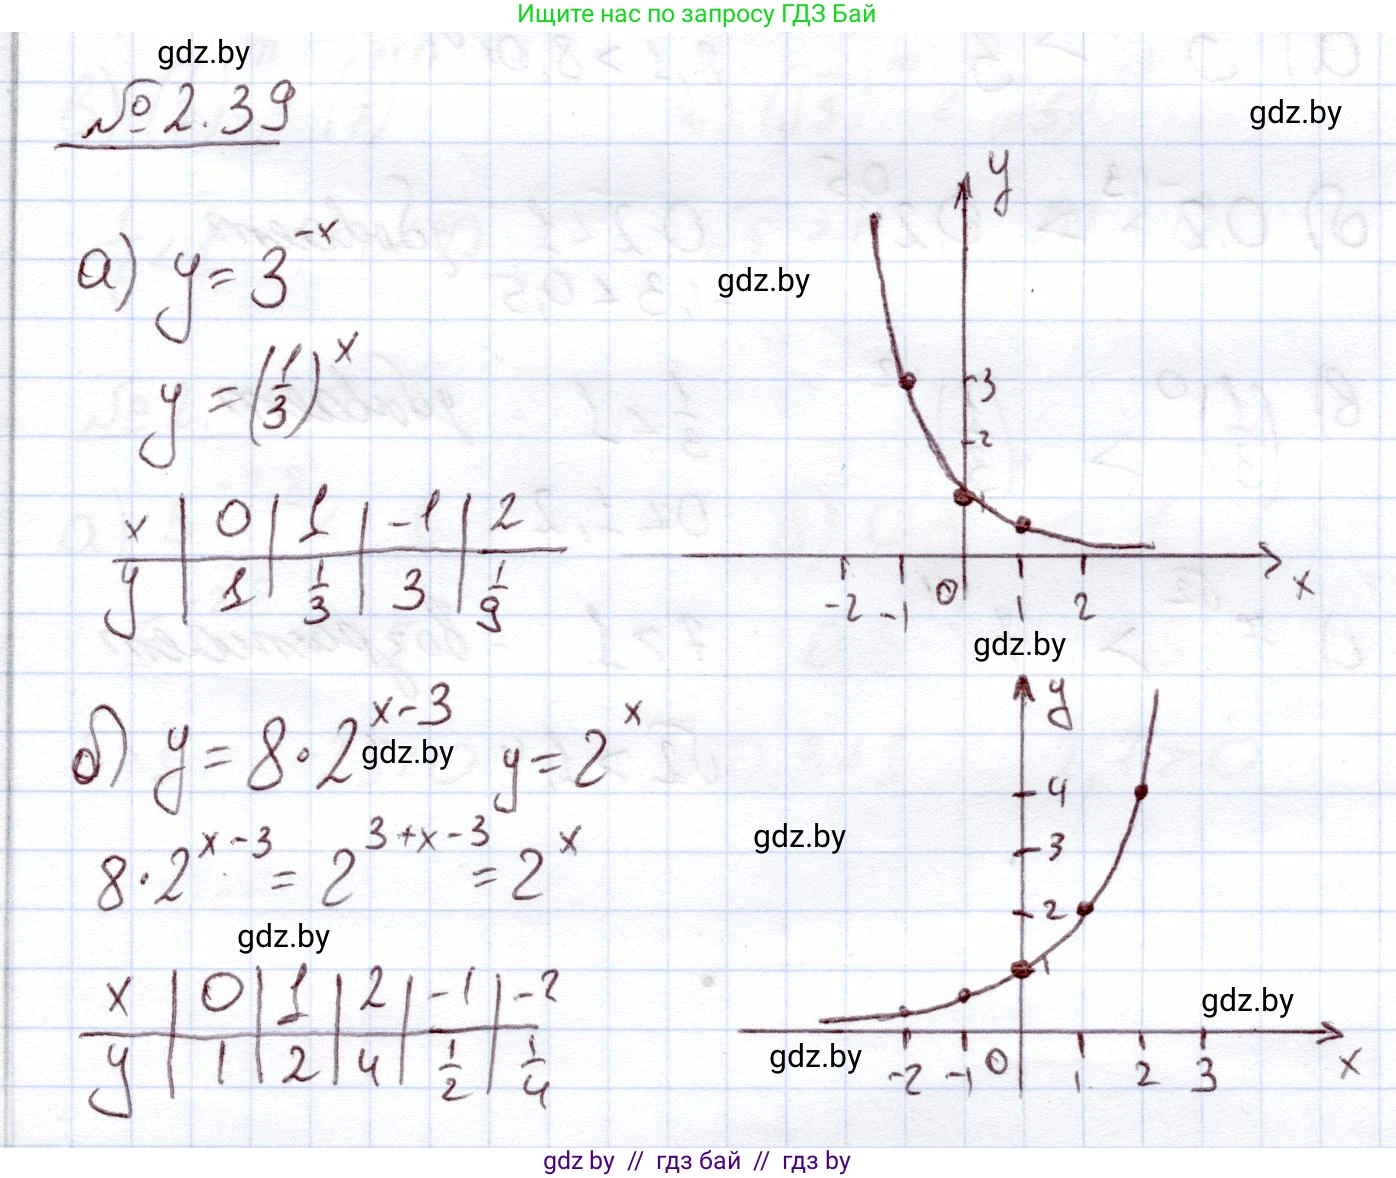 Ищите нас по запросу ГДЗ Бай
gdz.by
№ 2.39
gdz.by
а) y = 3^{-x}
gdz.by
y = (1/3)^x
x | 0 | 1 | -1 | 2
y | 1 | 1/3 | 3 | 1/9
y
3
2
1
-2 -1 0 1 2 x
gdz.by
б) y = 8 · 2^{x-3} y = 2^x
gdz.by
8 · 2^{x-3} = 2^{3+x-3} = 2^x
gdz.by
gdz.by
x | 0 | 1 | 2 | -1 | -2
y | 1 | 2 | 4 | 1/2 | 1/4
y
4
3
2
1
gdz.by
gdz.by
-2 -1 0 1 2 3 x
gdz by // гдз бай // гдз by